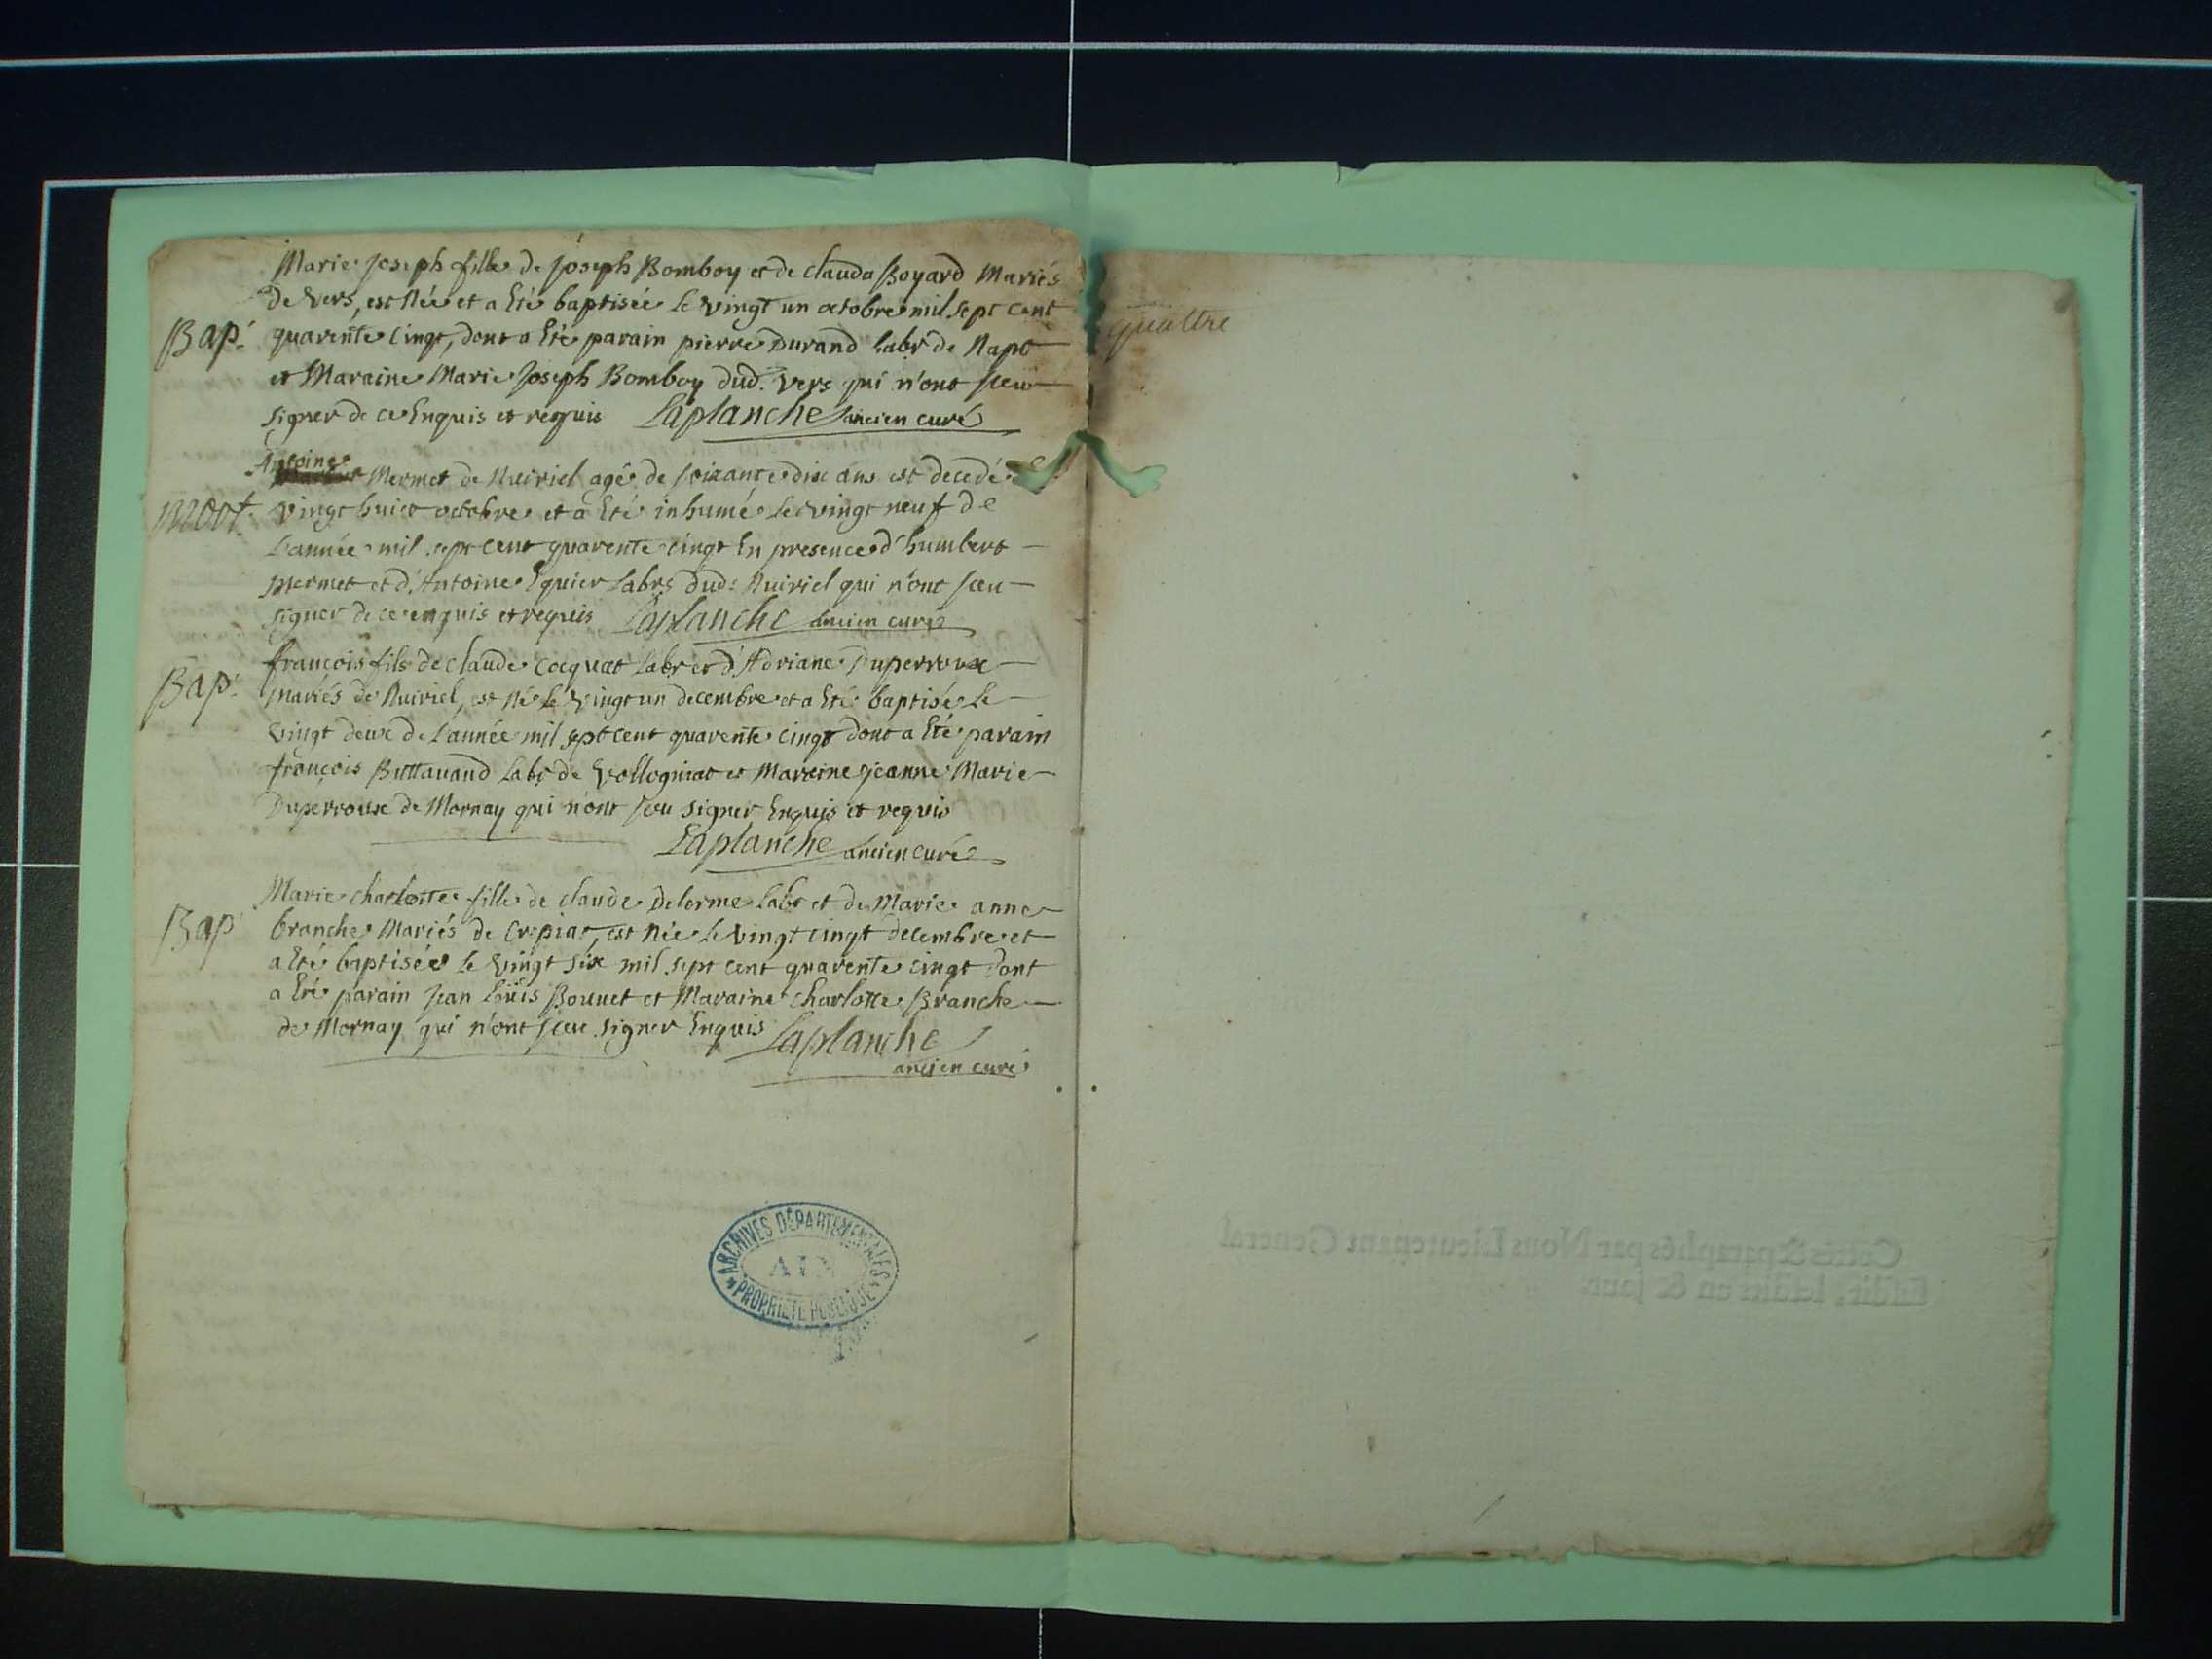 Marie Joseph fille de Joseph Bomboy et de clauda Boyard Mariés
de Vers, est Née et a Eté baptisée le vingt un octobre mil sept cent
Bap. quarente cingt, dont a Eté parain pierre Durand labr de Napt
et Maraine Marie Joseph Bomboy dud. Vers qui n'ont sceu
signer de ce Enquis et requis Laplanche ancien curé
Antoine
Mermet de Nuiriel agé de soixante dix ans est decedé
Mort. vingt huict octobre et a Eté inhumé le vingt neuf de
L'année mil sept cent quarente cingt En presence d'humbert
Mermet et d'Antoine Eguier labrs dud. Nuiriel qui n'ont sceu
signer de ce enquis et requis Laplanche ancien curé
françois fils de claude Cocquat labr et d'Adriane Duperroux
Bap. mariés de Nuiriel, est Né le vingt un decembre et a Eté baptisé le
vingt deux de L'année mil sept cent quarente cingt dont a Eté parain
françois Buttavand labr de Vollogniat et Maraine jeanne Marie
Duperroux de Mornay qui n'ont sceu signer Enquis et requis
Laplanche ancien curé
Marie charlotte fille de claude Delorme labr et de Marie anne
Bap branche Mariés de Crepiat, est Née le vingt cingt decembre et
a Eté baptisée le vingt six mil sept cent quarente cingt Dont
a Eté parain Jean Loüis Bouuet et Maraine charlotte Branche
de Mornay qui n'ont sceu signer Enquis Laplanche
ancien curé
ARCHIVES DÉPARTEMENTALES
AIN
PROPRIÉTÉ PUBLIQUE
quattre
Cottés & paraphés par Nous Lieutenant General
susdit, lesdits an & jour.